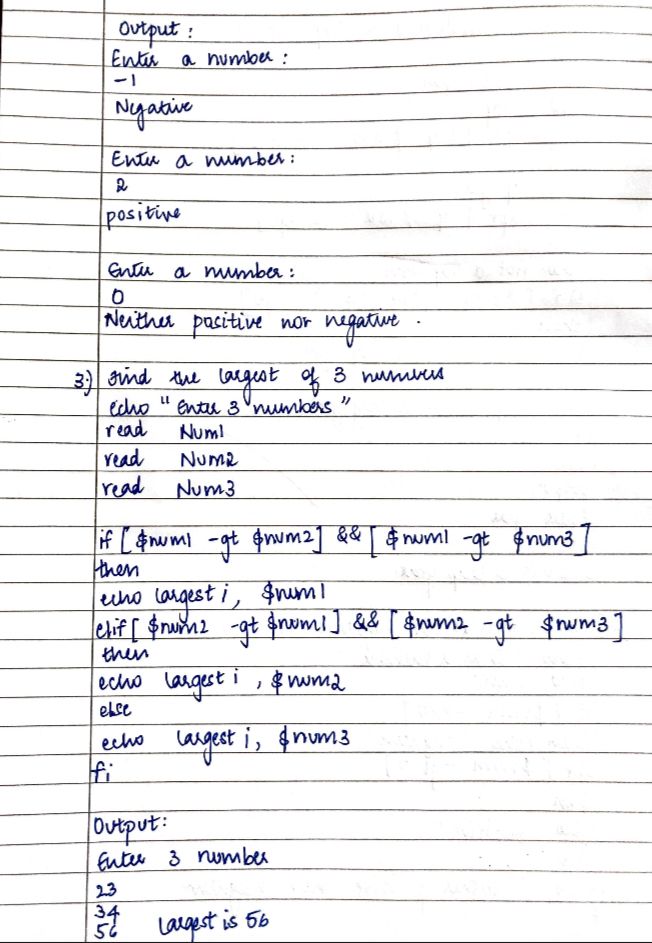 Output :
Enter a number :
-1
Negative
Enter a number :
2
positive
Enter a number :
0
Neither positive nor negative .
3) Find the largest of 3 numbers
echo " Enter 3 numbers "
read Num1
read Num2
read Num3
if [ $num1 -gt $num2] && [ $num1 -gt $num3 ]
then
echo largest i, $num1
elif [ $num2 -gt $num1 ] && [ $num2 -gt $num3 ]
then
echo largest i , $num2
else
echo largest i, $num3
fi
Output:
Enter 3 number
23
34
56 Largest is 56